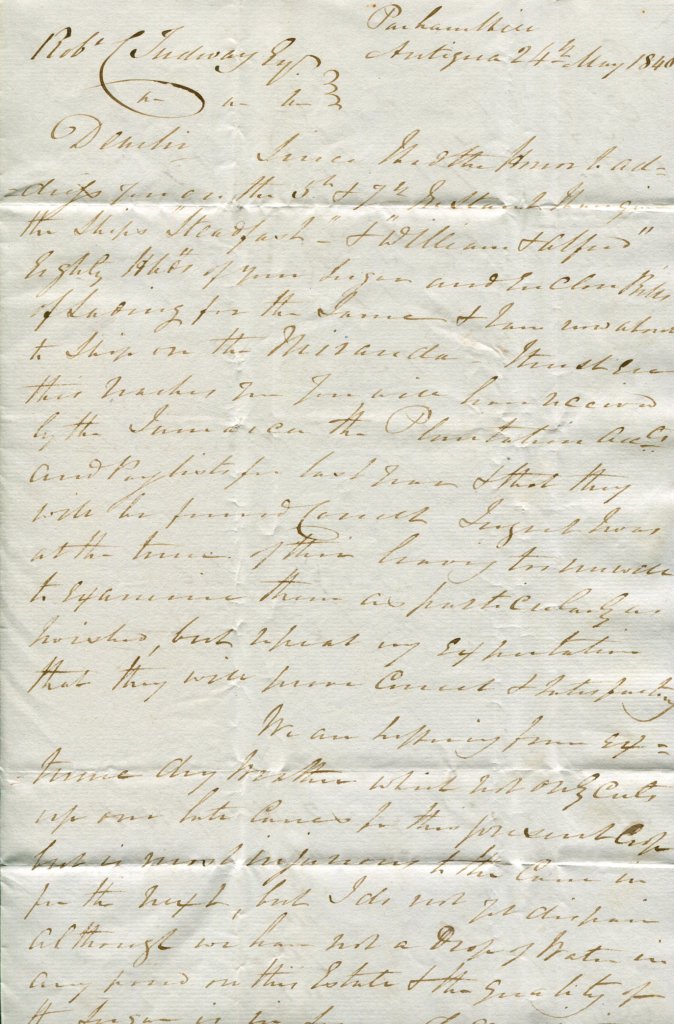 Parham Hill
Antigua 24th May 1840
Robt Tudway Esqr
Dear Sir Since I had the Honor to ad=
=dress you on the 5th & 7th Instant
the Ships "Steadfast" & "William & Alfred"
Eighty Hhds of your Sugar and Enclose Bills
of Lading for the Same & I am now about
to Ship on the Miranda. I trust Ere
this reaches you You will have received
by the Jamaica the Plantation Accts
and Paylists for last Year & that they
will be found Correct I regret I was
at the time of their leaving too unwell
to examine them as particularly as I
wished, but repeat my Expectation
that they will prove Correct & Satisfactory
We are suffering from Ex=
treme dry Weather which not only Cuts
up our late Canes for this present Crop
but is most injurious to the Cane in
for the next, but I do not yet dispair
although we have not a Drop of Water in
any pond on this Estate & the quality of
the Sugar is